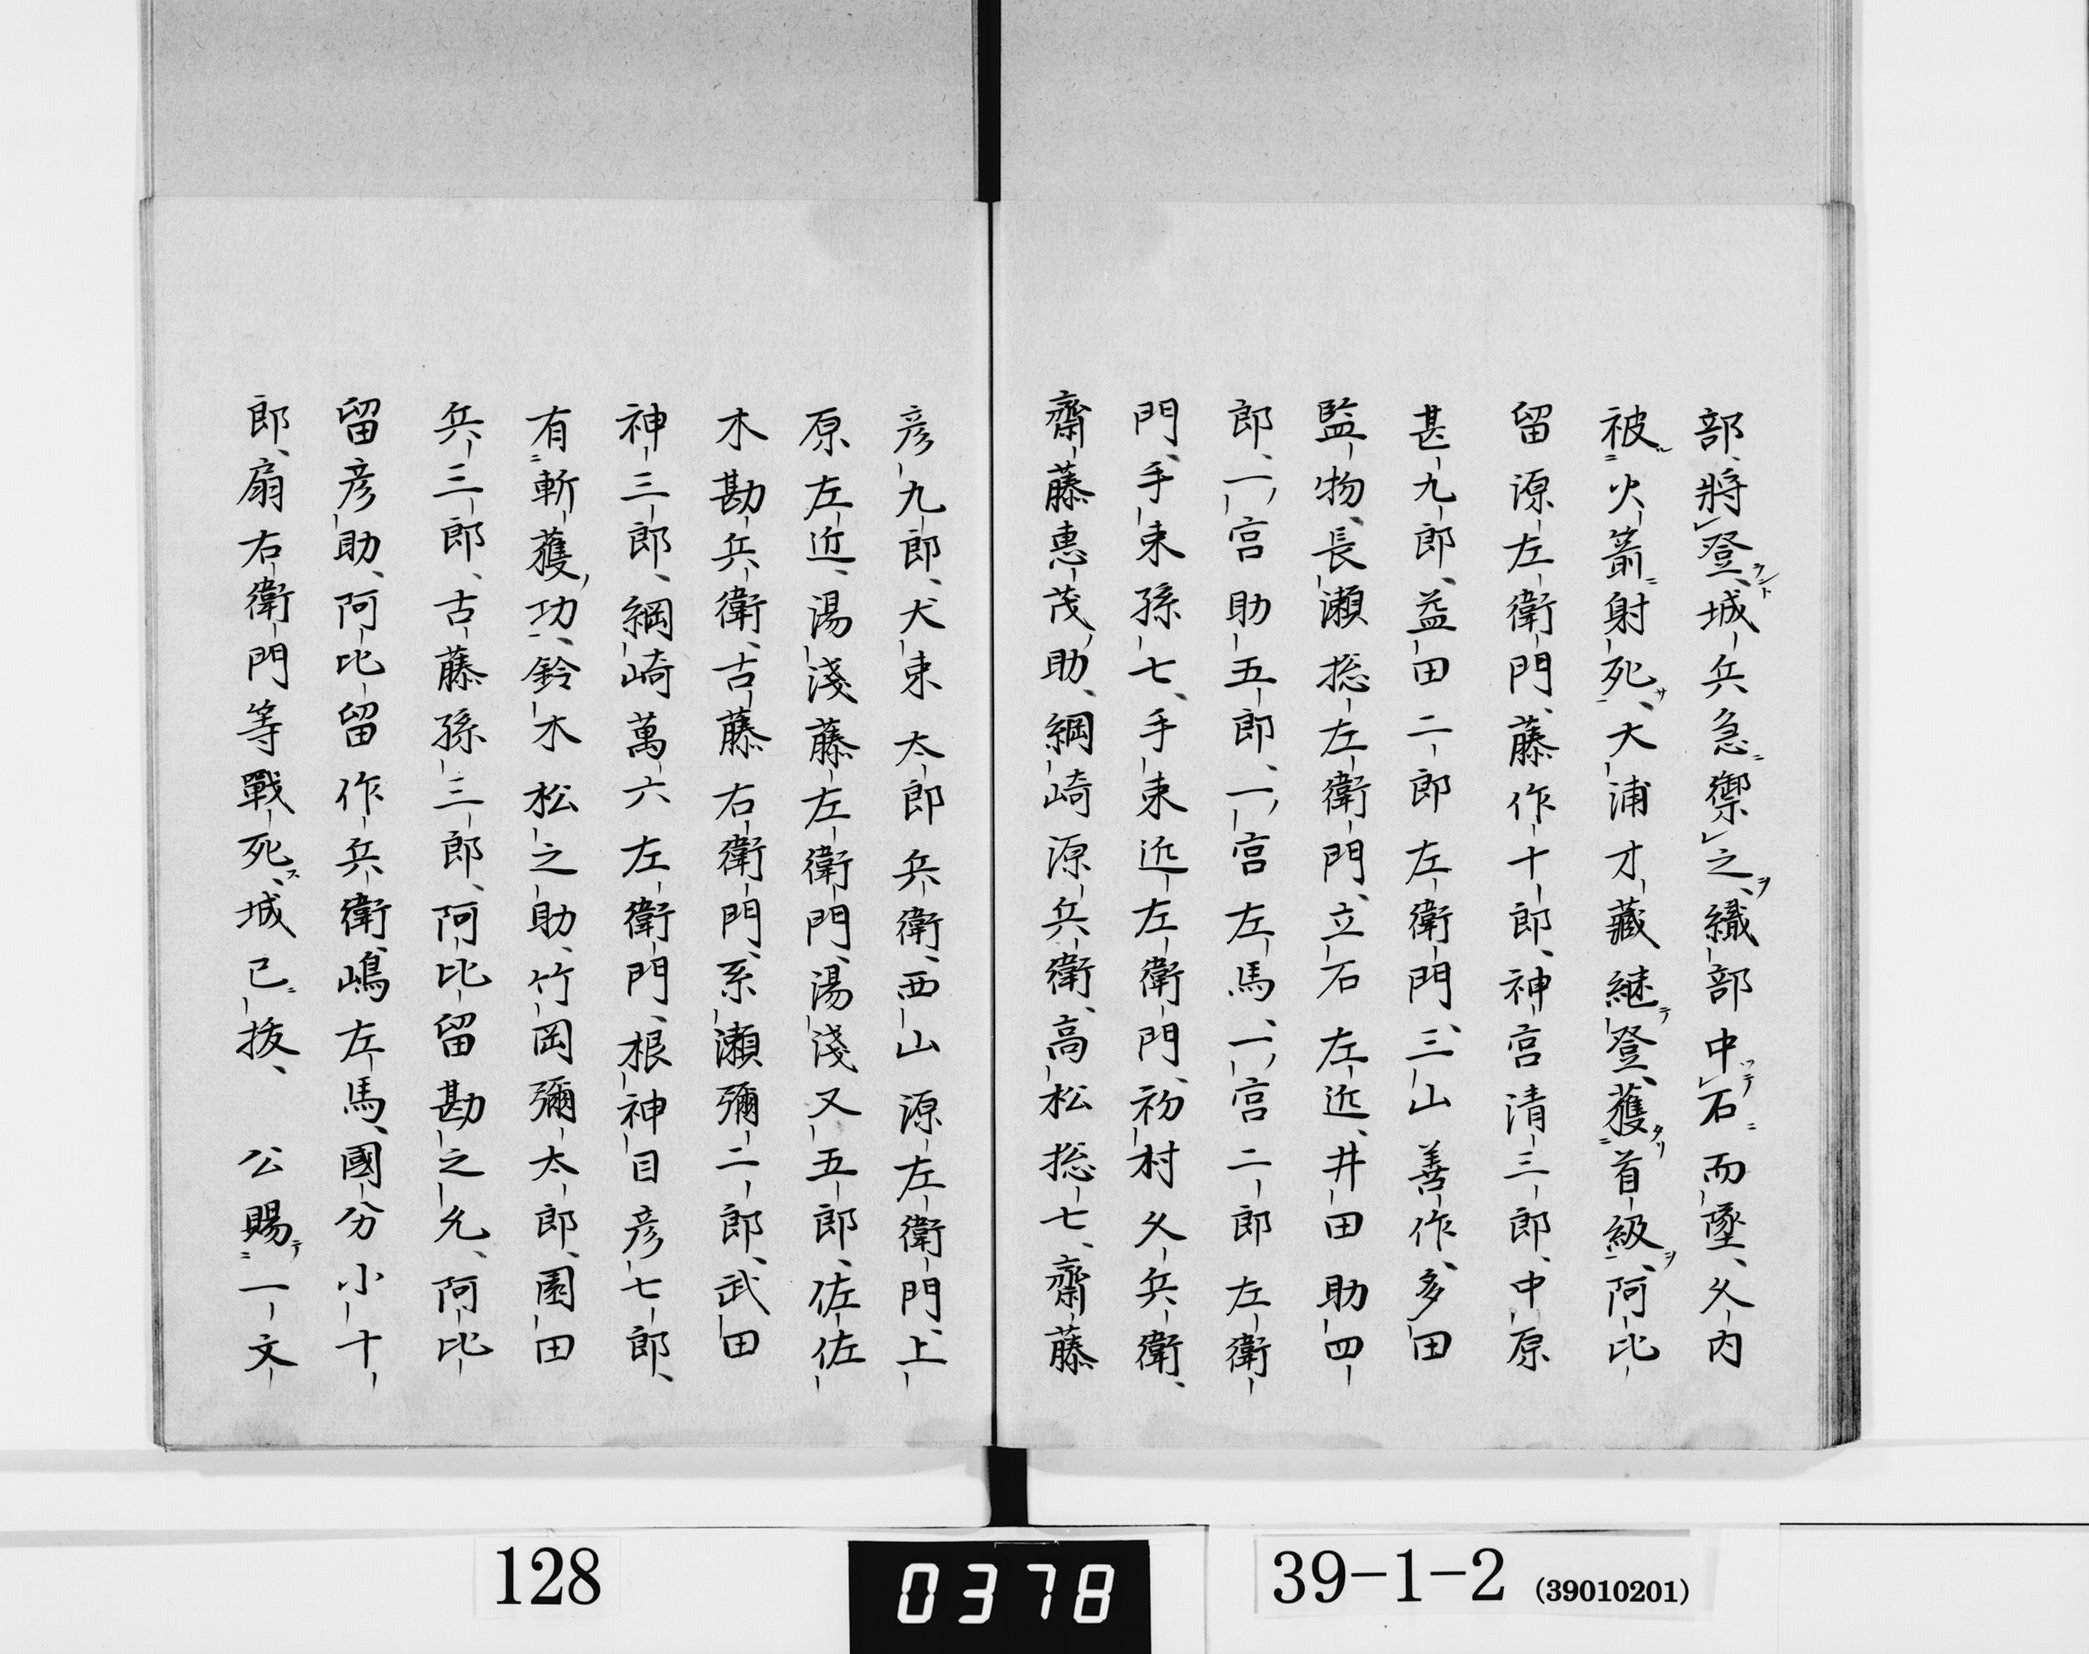 部、將登城兵急禦之、織部中石而墜、久内
被火箭射死、大浦才藏継登、獲首級、阿比
留源左衛門、藤作十郎、神宮清三郎、中原
甚九郎、益田二郎左衛門、三山善作、多田
監物、長瀬捴左衛門、立石左近、井田助四
郎、一宮助五郎、一宮左馬、一宮二郎左衛
門、手束孫七、手束近左衛門、初村久兵衛、
齋藤惠茂助、綱崎源兵衛、高松捴七、齋藤
彦九郎、犬束太郎兵衛、西山源左衛門、上
原左近、湯淺藤左衛門、湯淺又五郎、佐佐
木勘兵衛、古藤右衛門、糸瀬彌二郎、武田
神三郎、綱崎萬六左衛門、根神目彦七郎、
有斬獲功、鈴木松之助、竹岡彌太郎、園田
兵三郎、古藤孫三郎、阿比留勘之允、阿比
留彦助、阿比留作兵衛、嶋左馬、國分小十
郎、扇右衛門等戰死、城已拔、公賜一文
128
0378
39-1-2 (39010201)